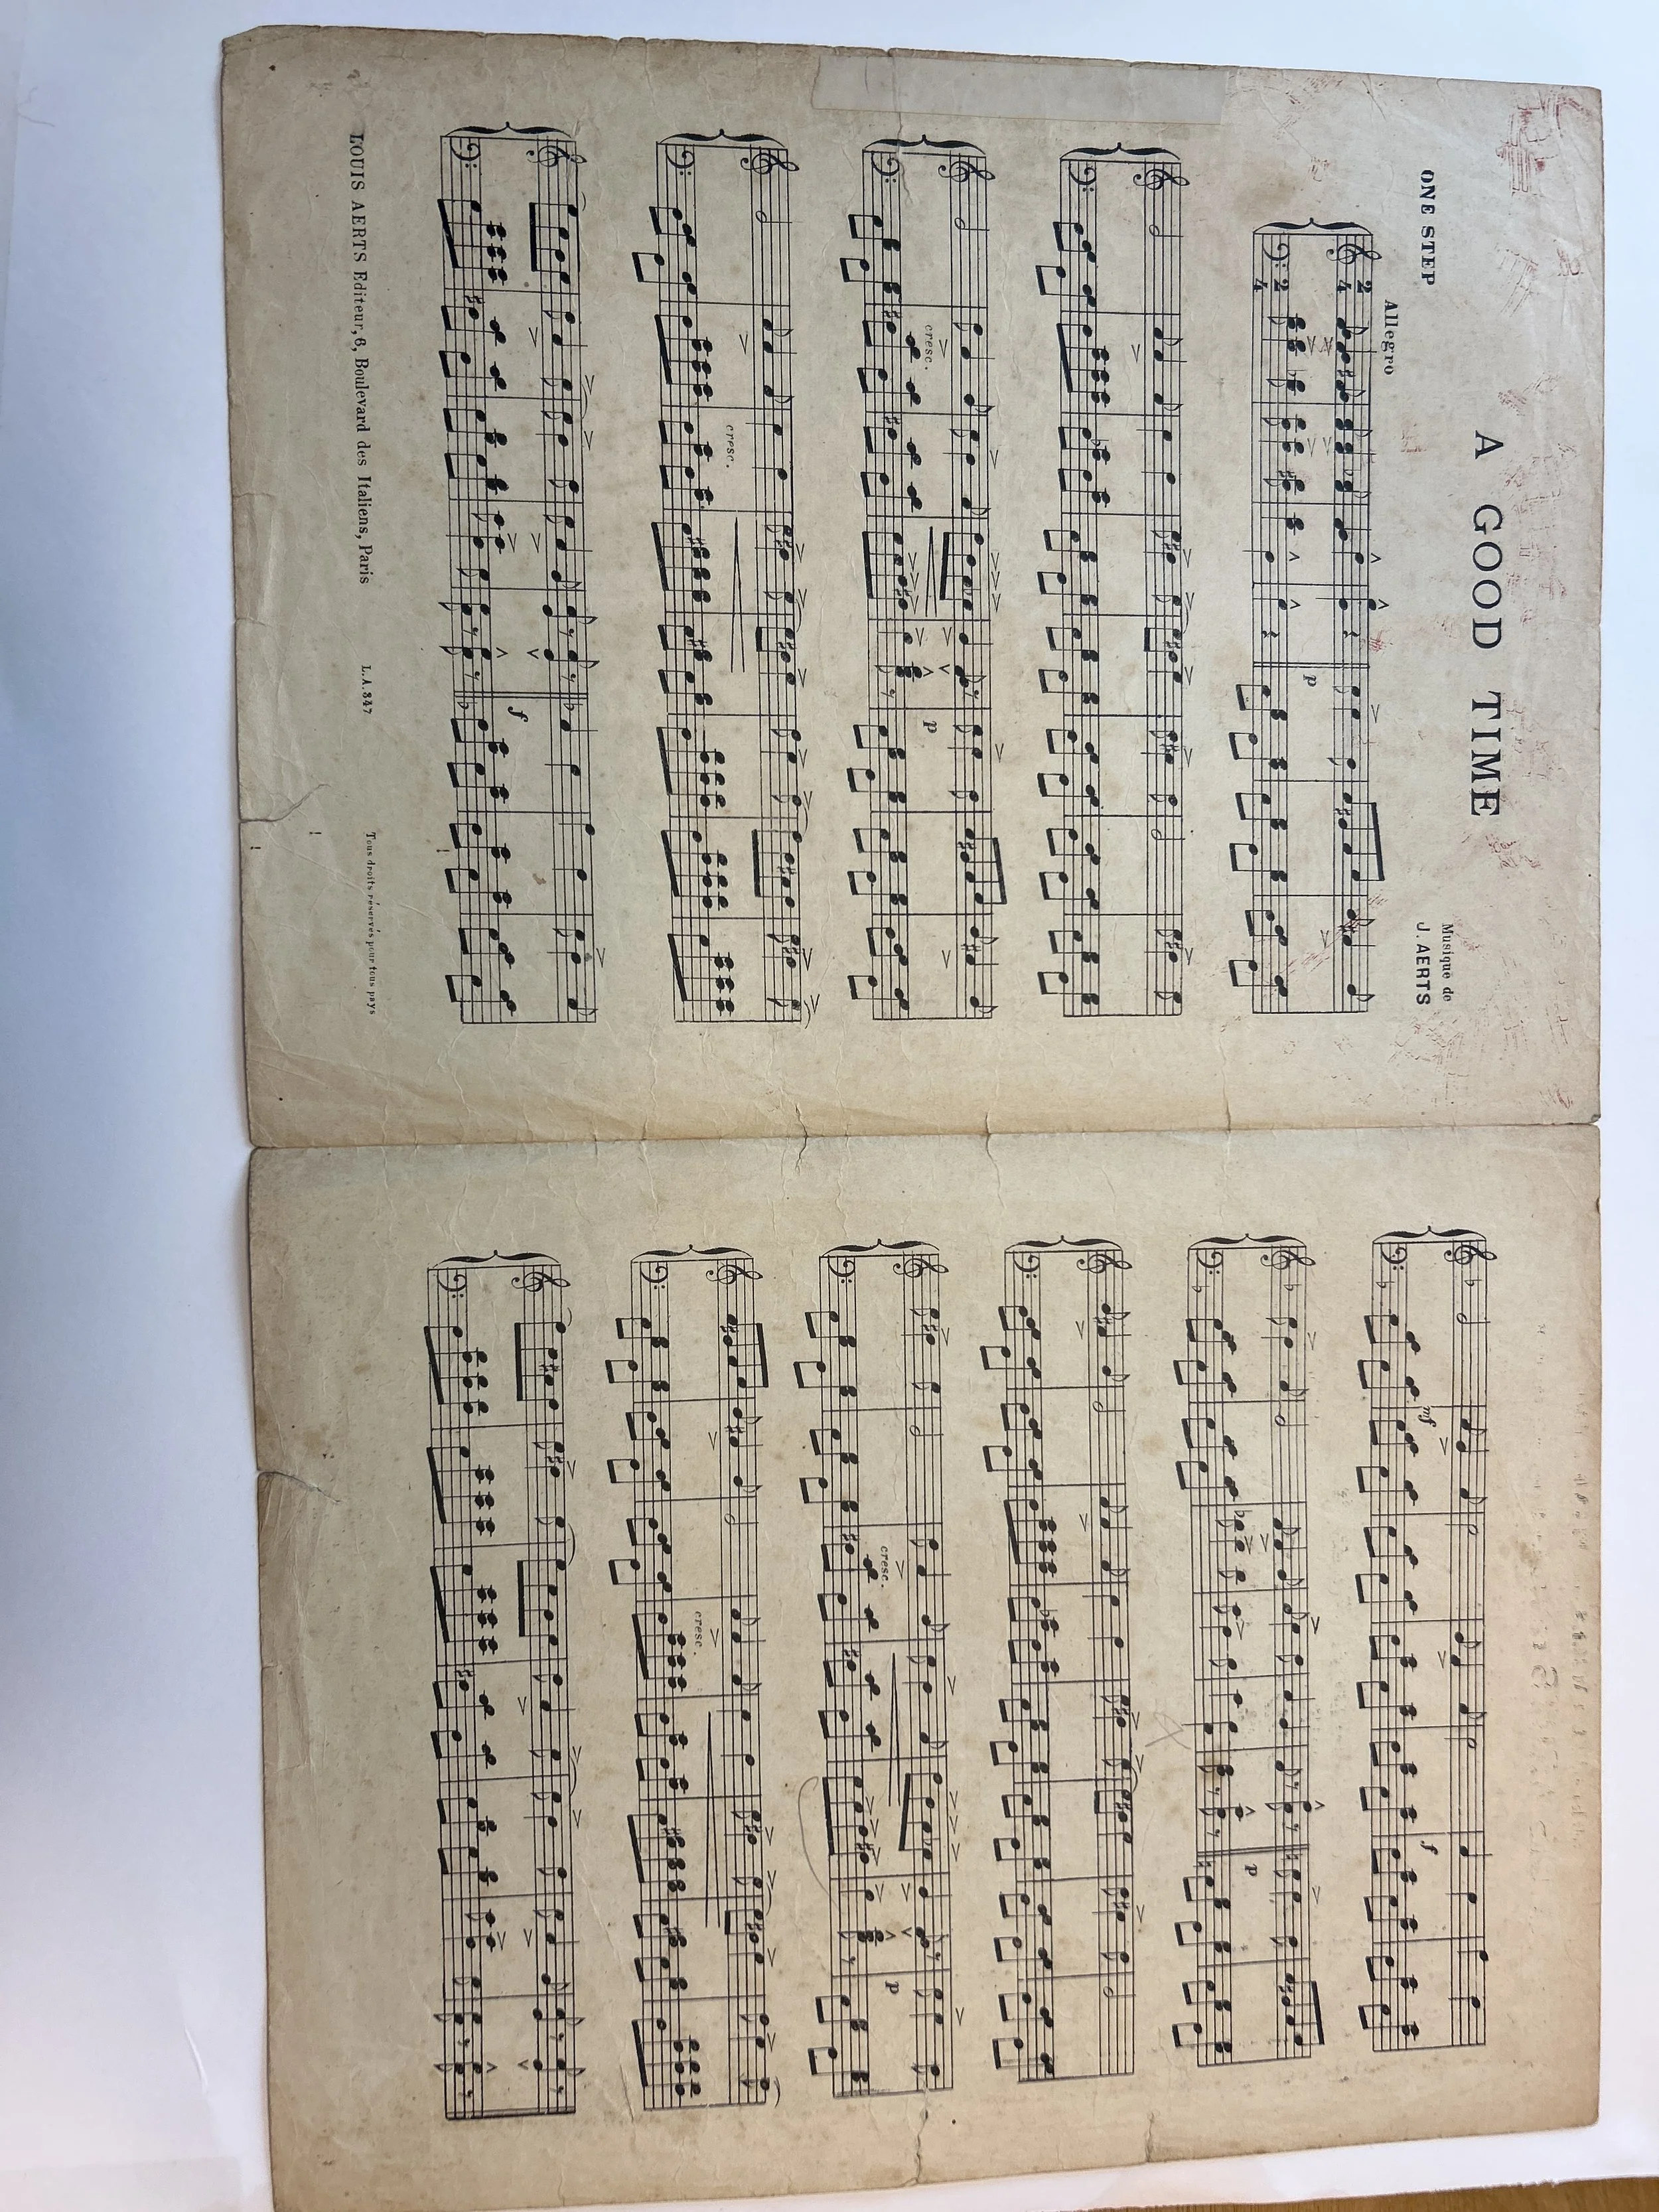 A GOOD TIME
ONE STEP
Musique de
J. AERTS
Allegro
2 4
2 4
p
cresc.
p
cresc.
f
LOUIS AERTS Editeur, 6, Boulevard des Italiens, Paris
L.A. 847
Tous droits réservés pour tous pays
mf
f
p
cresc.
p
cresc.